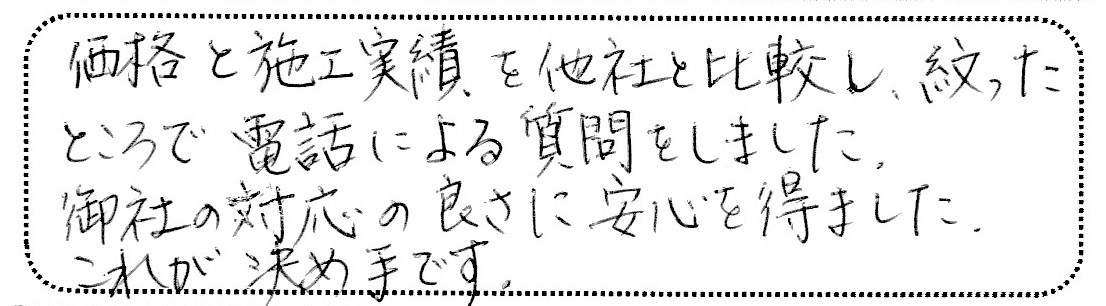 価格と施工実績を他社と比較し、絞った
ところで電話による質問をしました。
御社の対応の良さに安心を得ました。
これが決め手です。